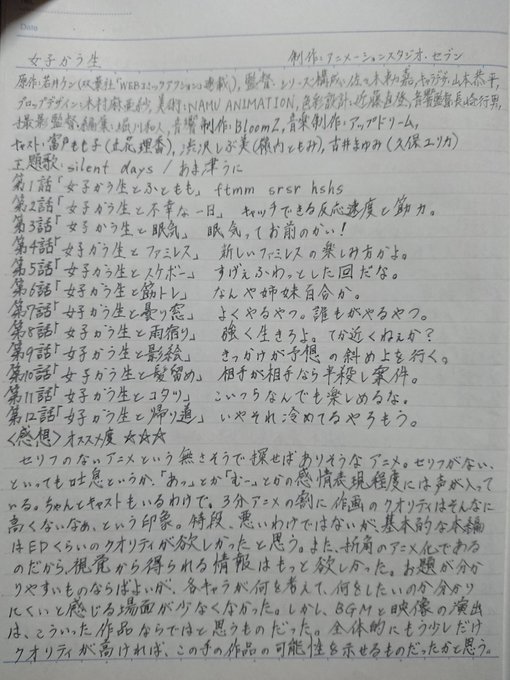 Date
女子かう生　制作：アニメーションスタジオ・セブン
原作：若井ケン(双葉社「WEBコミックアクション」連載)，監督・シリーズ構成：佐々木勅嘉，キャラデザ：山本恭平，
プロップデザイン：木村麻亜紗，美術：NAMU ANIMATION，色彩設計：近藤直登，音響監督：長崎行男，
撮影監督・編集：堀川和人，音響制作：BloomZ，音楽制作：アップドリーム，
キャスト：富戸もも子(立花理香)，渋沢しぶ美(積内ともみ)，古井まゆみ(久保ユリカ)
主題歌：silent days / あま津うに
第1話「女子かう生とふともも」 ftmm srsr hshs
第2話「女子かう生と不幸な一日」 キャッチできる反応速度と筋力。
第3話「女子かう生と眠気」 眠気ってお前のかい！
第4話「女子かう生とファミレス」 新しいファミレスの楽しみ方かよ。
第5話「女子かう生とスケボー」 すげぇふわっとした回だな。
第6話「女子かう生と筋トレ」 なんや姉妹百合か。
第7話「女子かう生と曇り窓」 よくやるやつ。誰もがやるやつ。
第8話「女子かう生と雨宿り」 強く生きろよ。てか近くねぇか？
第9話「女子かう生と影絵」 きっかけが予想の斜め上を行く。
第10話「女子かう生と髪留め」 相手が相手なら半殺し案件。
第11話「女子かう生とコタツ」 こいつらなんでも楽しめるな。
第12話「女子かう生と帰り道」 いやそれ冷めてるやろもう。
〈感想〉オススメ度 ☆☆☆
セリフのないアニメという無さそうで探せばありそうなアニメ。セリフがない、
といっても吐息というか、「あっ」とか「むー」とかの感情表現程度には声が入って
いる。ちゃんとキャストもいるわけで。3分アニメの割に作画のクオリティはそんなに
高くないなぁ、という印象。特段、悪いわけではないが、基本的な本編
はEDくらいのクオリティが欲しかったと思う。また、折角のアニメ化である
のだから、視覚から得られる情報はもっと欲しかった。お題が分か
りやすいものならばよいが、各キャラが何を考えて、何をしたいのか分かり
にくいと感じる場面が少なくなかった。しかし、BGMと映像の演出
は、こういった作品ならではと思うものだった。全体的にもう少しだけ
クオリティが高ければ、この手の作品の可能性を示せるものだったかと思う。